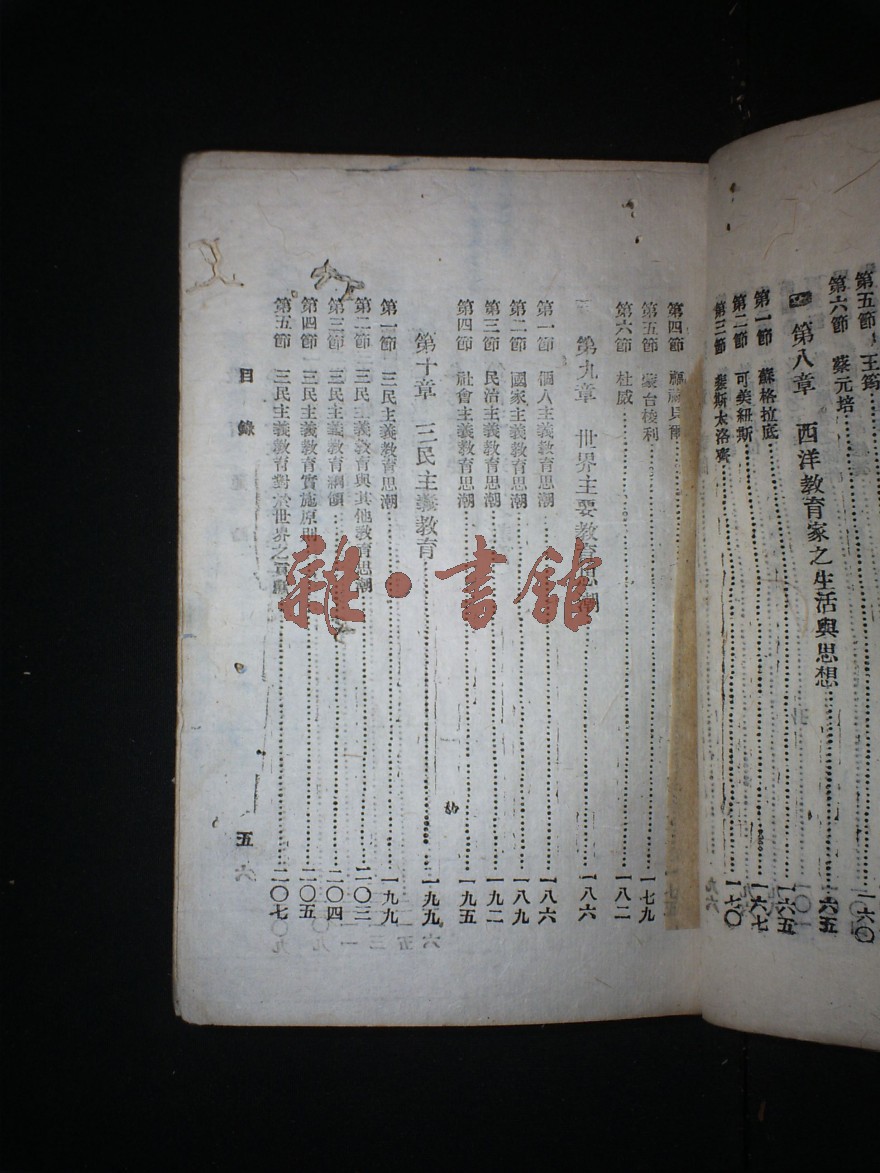 第五節 王筠
第六節 蔡元培……一六〇
第八章 西洋教育家之生活與思想……一六五
第一節 蘇格拉底……一六五
第二節 可美紐斯……一六七
第三節 裴斯太洛齊……一七〇
第四節
第五節 蒙台梭利……一七九
第六節 杜威……一八二
第九章 世界主要教育思潮……一八六
第一節 個人主義教育思潮……一八六
第二節 國家主義教育思潮……一八九
第三節 民治主義教育思潮……一九二
第四節 社會主義教育思潮……一九五
第十章 三民主義教育……一九九
第一節 三民主義教育思潮……一九九
第二節 三民主義教育與其他教育思潮……二〇三
第三節 三民主義教育綱領……二〇四
第四節 三民主義教育實施原則……二〇五
第五節 三民主義教育對於世界之貢獻……二〇七
目錄
五
雜·書館